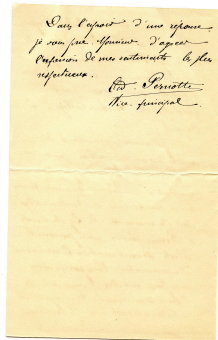 Dans l'espoir d'une réponse
je vous prie Monsieur d'agréer
l'expression de mes sentiments les plus
respectueux.
Ed. Pernotte
Vice-principal.